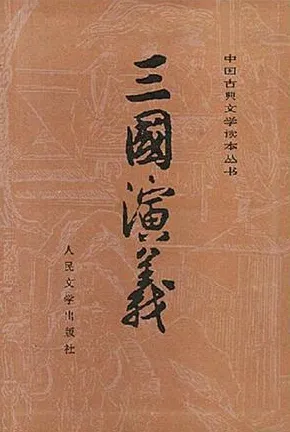 中国古典文学读本丛书
三國演義
人民文学出版社